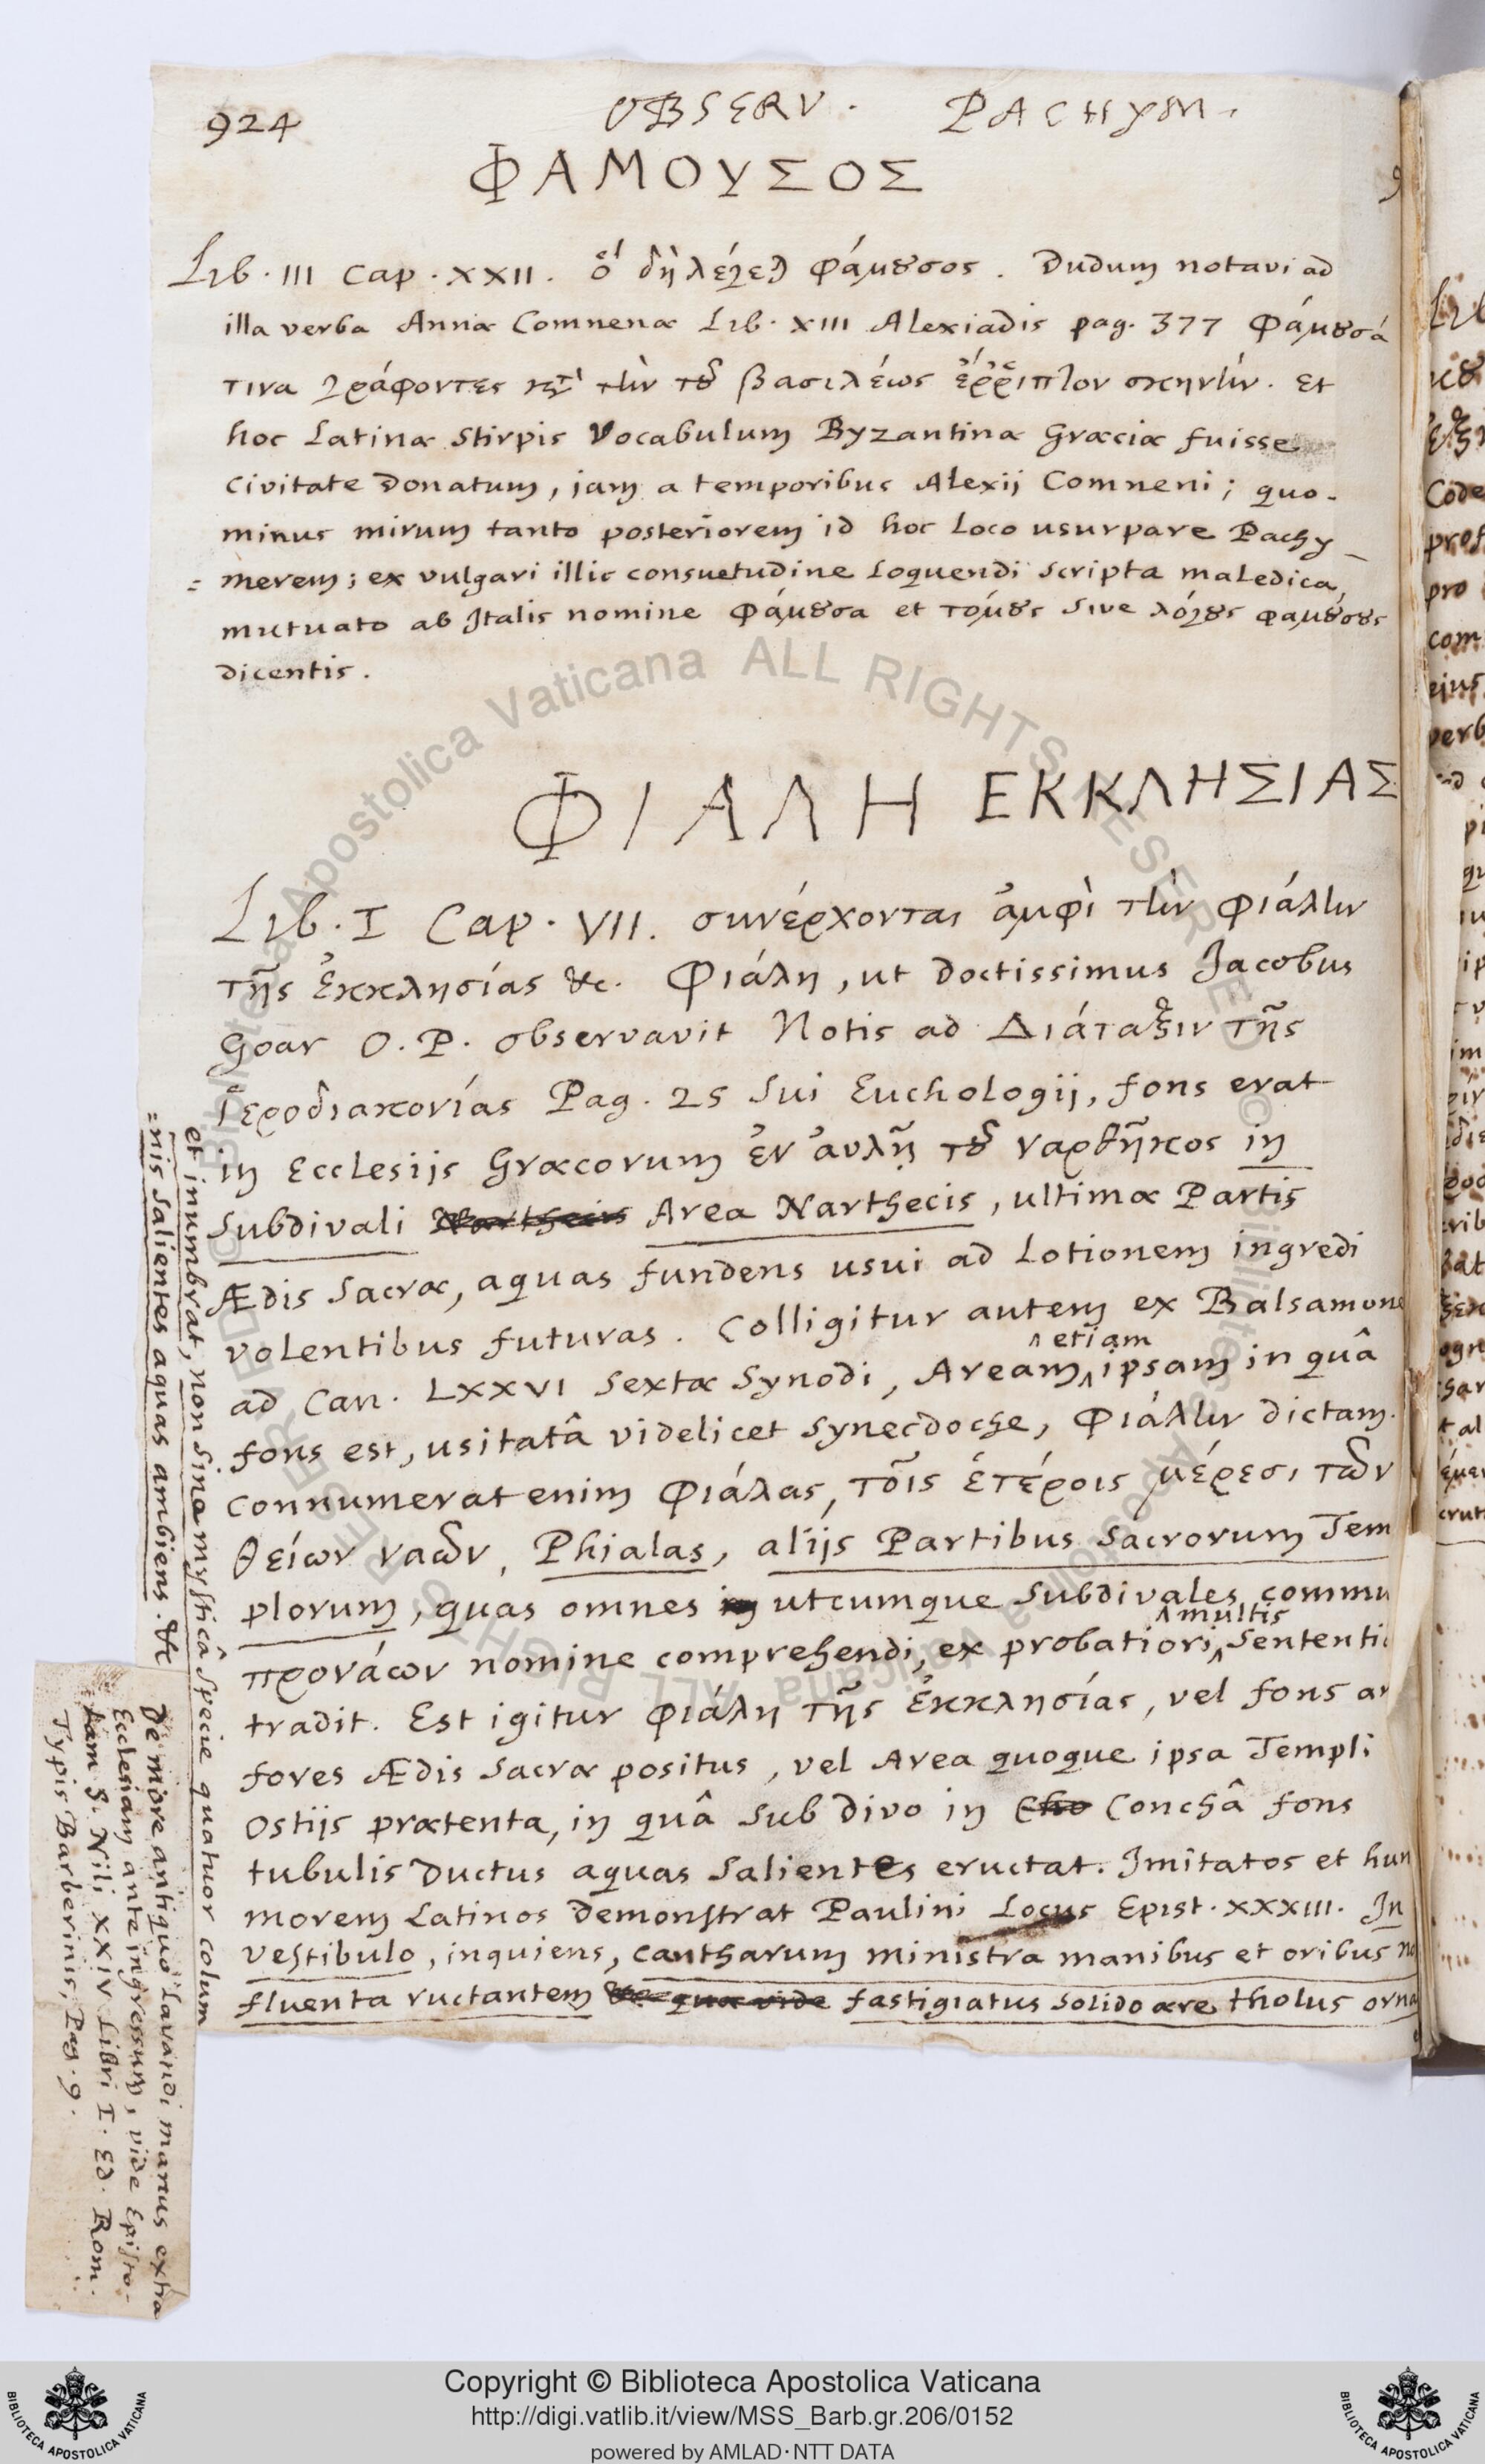 924 OBSERV. PACHYM.
ΦΑΜΟΥΣΟΣ
Lib. III Cap. XXII. ὃ δὴ λέγεται φάμουσος. Dudum notavi ad
illa verba Annæ Comnenæ Lib. XIII Alexiadis pag. 377 Φάμουσά
τινα γράφοντες κατὰ τὴν τοῦ βασιλέως ἔῤῥιπτον σκηνήν. Et
hoc Latinæ Stirpis Vocabulum Byzantinæ Græciæ fuisse
civitate donatum, jam a temporibus Alexij Comneni; quo-
minus mirum tanto posteriorem id hoc Loco usurpare Pachy
=merem; ex vulgari illic consuetudine Loquendi Scripta maledica,
mutuato ab Italis nomine Φάμουσα et τόμους sive λόγους φαμούσους
dicentis.
ΦΙΑΛΗ ΕΚΚΛΗΣΙΑΣ
Lib. I Cap. VII. συνέρχονται ἀμφὶ τὴν φιάλην
τῆς ἐκκλησίας &c. Φιάλη, ut doctissimus Jacobus
Goar O. P. observavit Notis ad Διάταξιν τῆς
Ἱεροδιακονίας Pag. 25 Sui Euchologij, fons erat
in Ecclesijs Græcorum ἐν αὐλῇ τοῦ ναρθῆκος in
Subdivali Narthecis Area Narthecis, ultimæ Partis
Ædis Sacræ, aquas fundens usui ad Lotionem ingredi
volentibus futuras. Colligitur autem ex Balsamone
ad Can. LXXVI Sextæ Synodi, Aream etiam ipsam in quâ
fons est, usitatâ videlicet Synecdoche, Φιάλην dictam.
connumerat enim Φιάλας, τοῖς ἑτέροις μέρεσι τῶν
θείων ναῶν, Phialas, alijs Partibus Sacrorum Tem
plorum, quas omnes in utcumque Subdivales, commu
προνάων nomine comprehendi, ex probatiori multis Sententia
tradit. Est igitur φιάλη τῆς ἐκκλησίας, vel fons an
fores Ædis Sacræ positus, vel Area quoque ipsa Templi
Ostijs prætenta, in quâ Sub divo in Cho Conchâ fons
tubulis ductus aquas Salientes eructat. Imitatos et hun
morem Latinos demonstrat Paulini Locus Epist. XXXIII. In
vestibulo, inquiens, cantharum ministra manibus et oribus no
fluenta ructantem &c quæ vide fastigiatus solido ære tholus orna
et inumbrat, non sine mysticâ specie quatuor colum
=nis salientes aquas ambiens. &c
De more antiquo Lavandi manus extra
Ecclesiam ante ingressum, vide Episto-
=lam S. Nili XXIV Libri I. Ed. Rom.
Typis Barberinis, Pag. 9.
Copyright © Biblioteca Apostolica Vaticana
http://digi.vatlib.it/view/MSS_Barb.gr.206/0152
powered by AMLAD·NTT DATA